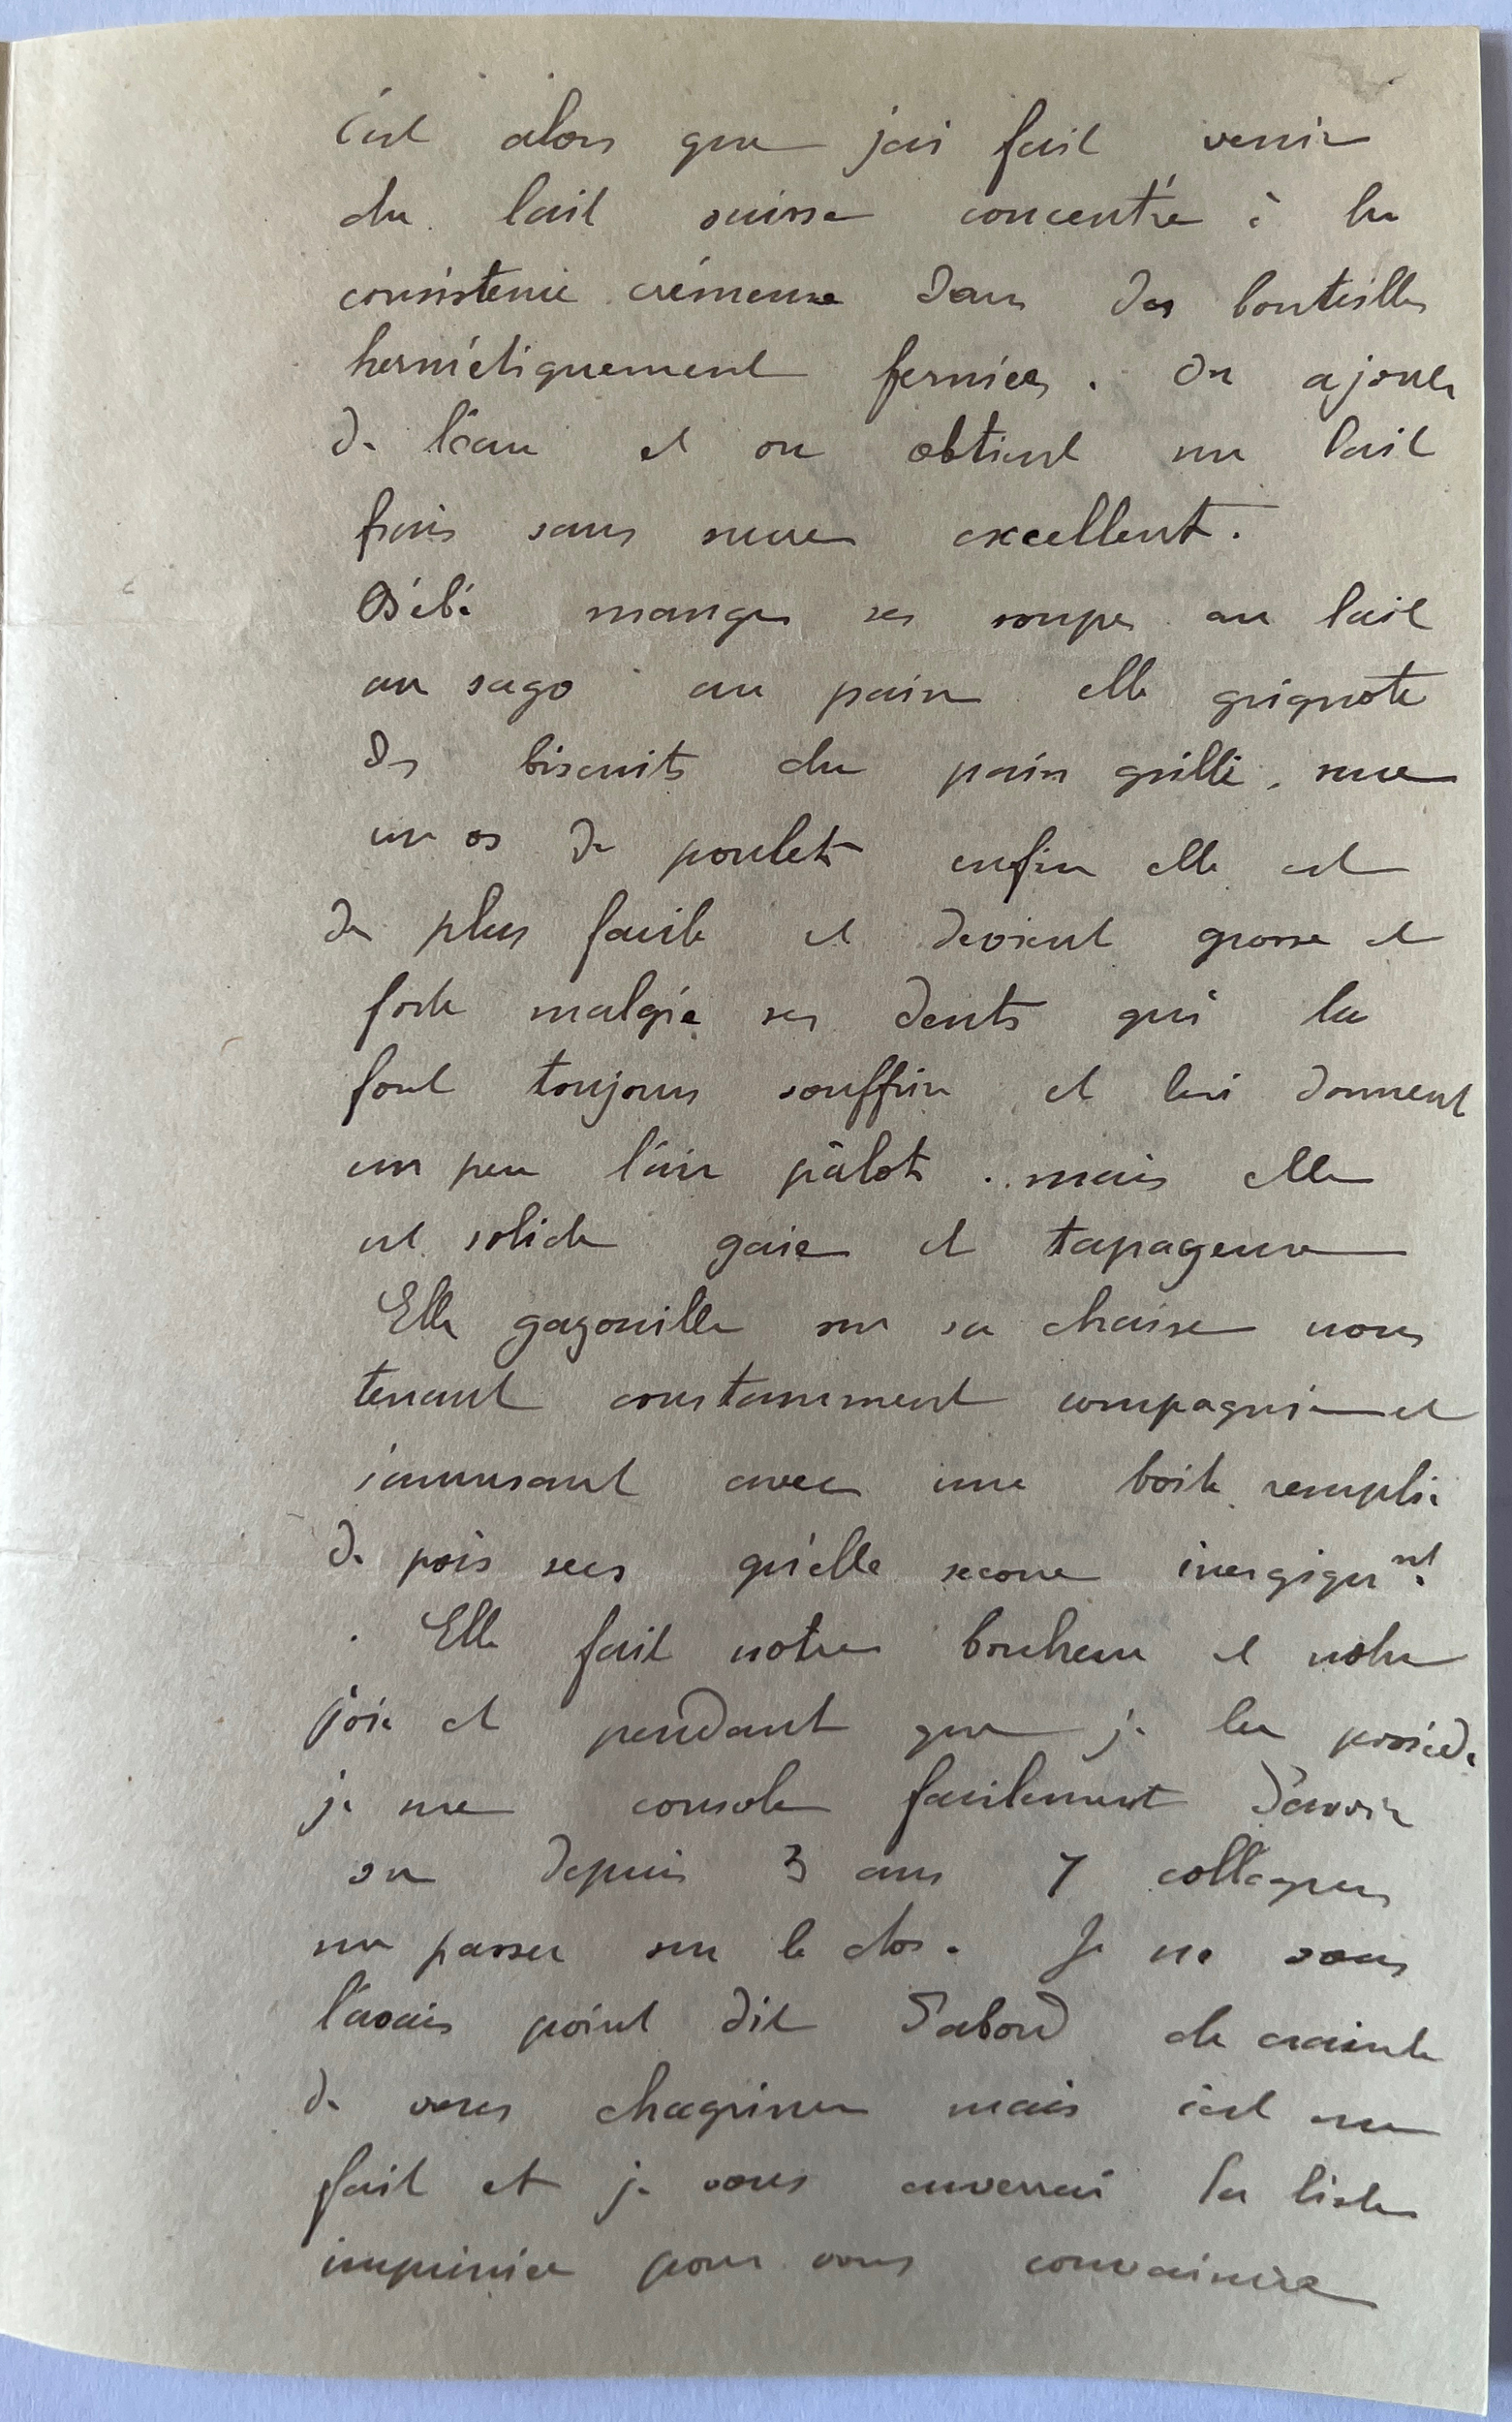 c'est alors que j'ai fait venir
du lait suisse concentré à la
consistence crémeuse dans des bouteilles
hermétiquement fermées. On ajoute
de l'eau et on obtient un lait
frais sans sucre excellent.
Bébé mange ses soupes au lait
au sago au pain elle grignote
des biscuits du pain grillé, suce
un os de poulet enfin elle est
des plus facile et devient grosse et
forte malgré ses dents qui la
font toujours souffrir et lui donnent
un peu l'air pâlot. mais elle
est solide gaie et tapageuse
Elle gazouille sur sa chaise nous
tenant constamment compagnie et
s'amusant avec une boite remplie
de pois secs qu'elle secoue énergiqunt.
Elle fait notre bonheur et notre
joie et pendant que je la possède
je me console facilement d'avoir
vu depuis 3 ans 7 collègues
me passer sur le dos. Je ne vous
l'avais point dit d'abord de crainte
de vous chagriner mais c'est un
fait et je vous enverrai la liste
imprimée pour vous convaincre